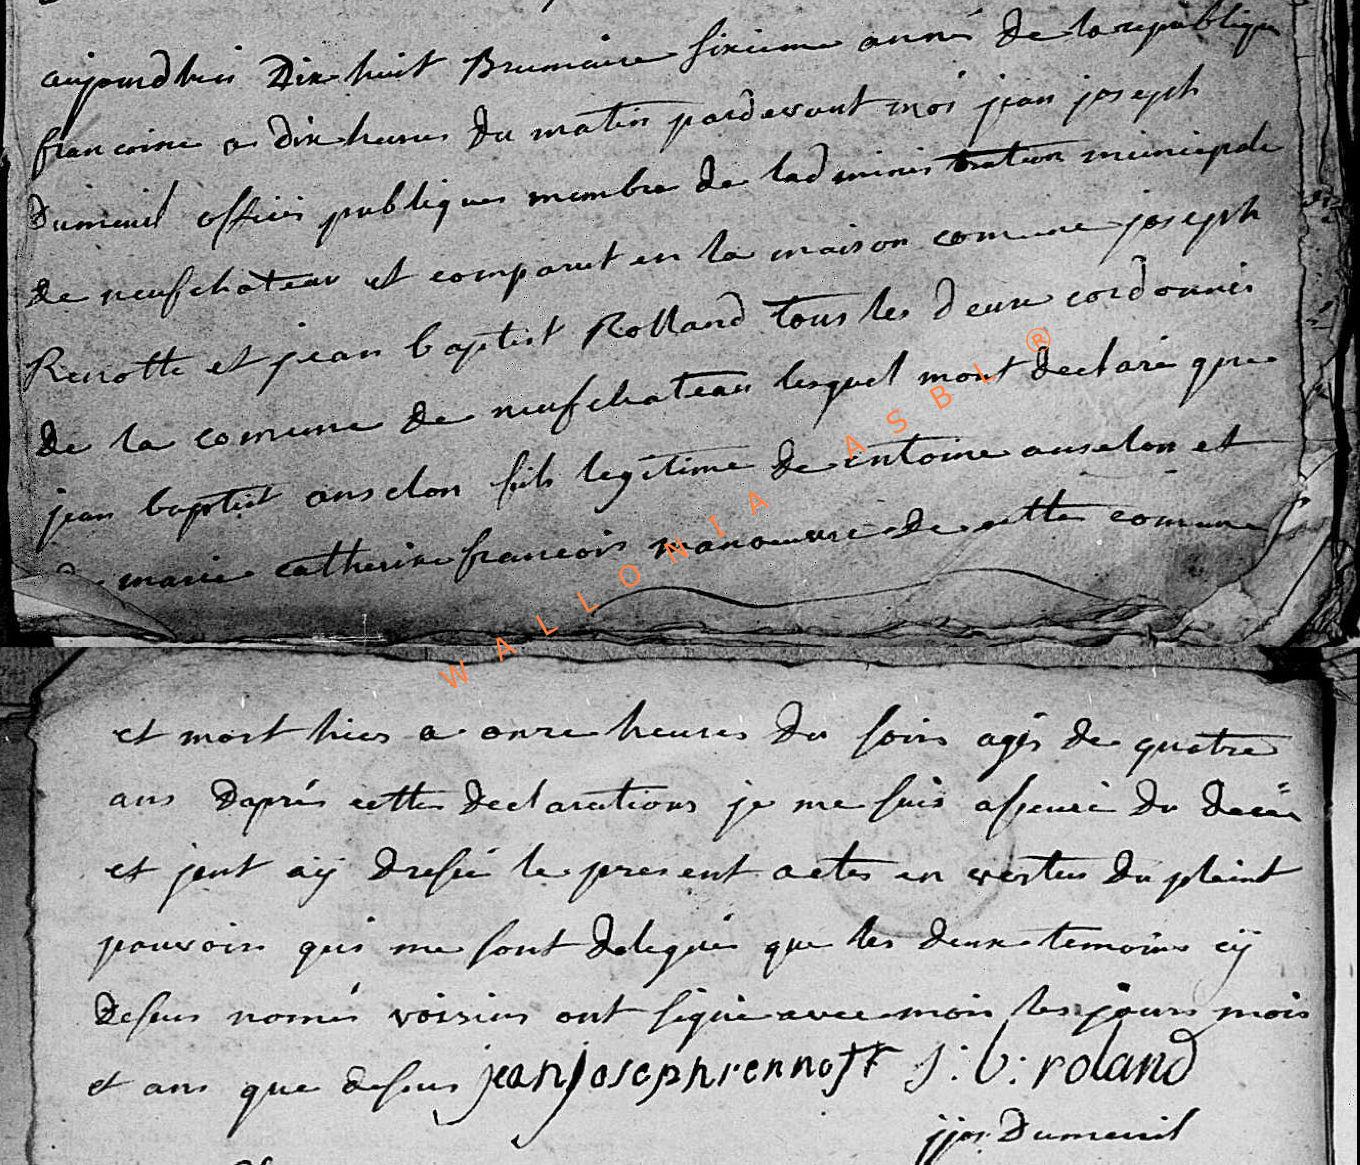 aujourdhui Dix huit Brumaire sixieme anné de la republique
francoise a dix heures du matin pardevant moi jean joseph
Dumenil officié publique membre de ladministration municipale
de neufchateau et comparut en la maison comune joseph
Renotte et jean baptist Rolland tous les deux cordonnié
de la comune de neufchateau lesquel mont declaré que
jean baptist anselon fils legitime de entoine anselon et
de marie catherine francois manoeuvre de cette comune
et mort hier a onze heures du soir agés de quatre
ans daprés cette declarations je me suis assuré du decès
et jent aÿ dressé le present actes en vertus du plaint
pouvoir quis me sont delegué que les deux temoins cÿ
dessus només voisins ont signé avec mois les jours mois
et ans que dessus jean joseph rennott j : b : roland
jjos Dumenil
WALLONIA ASBL ®